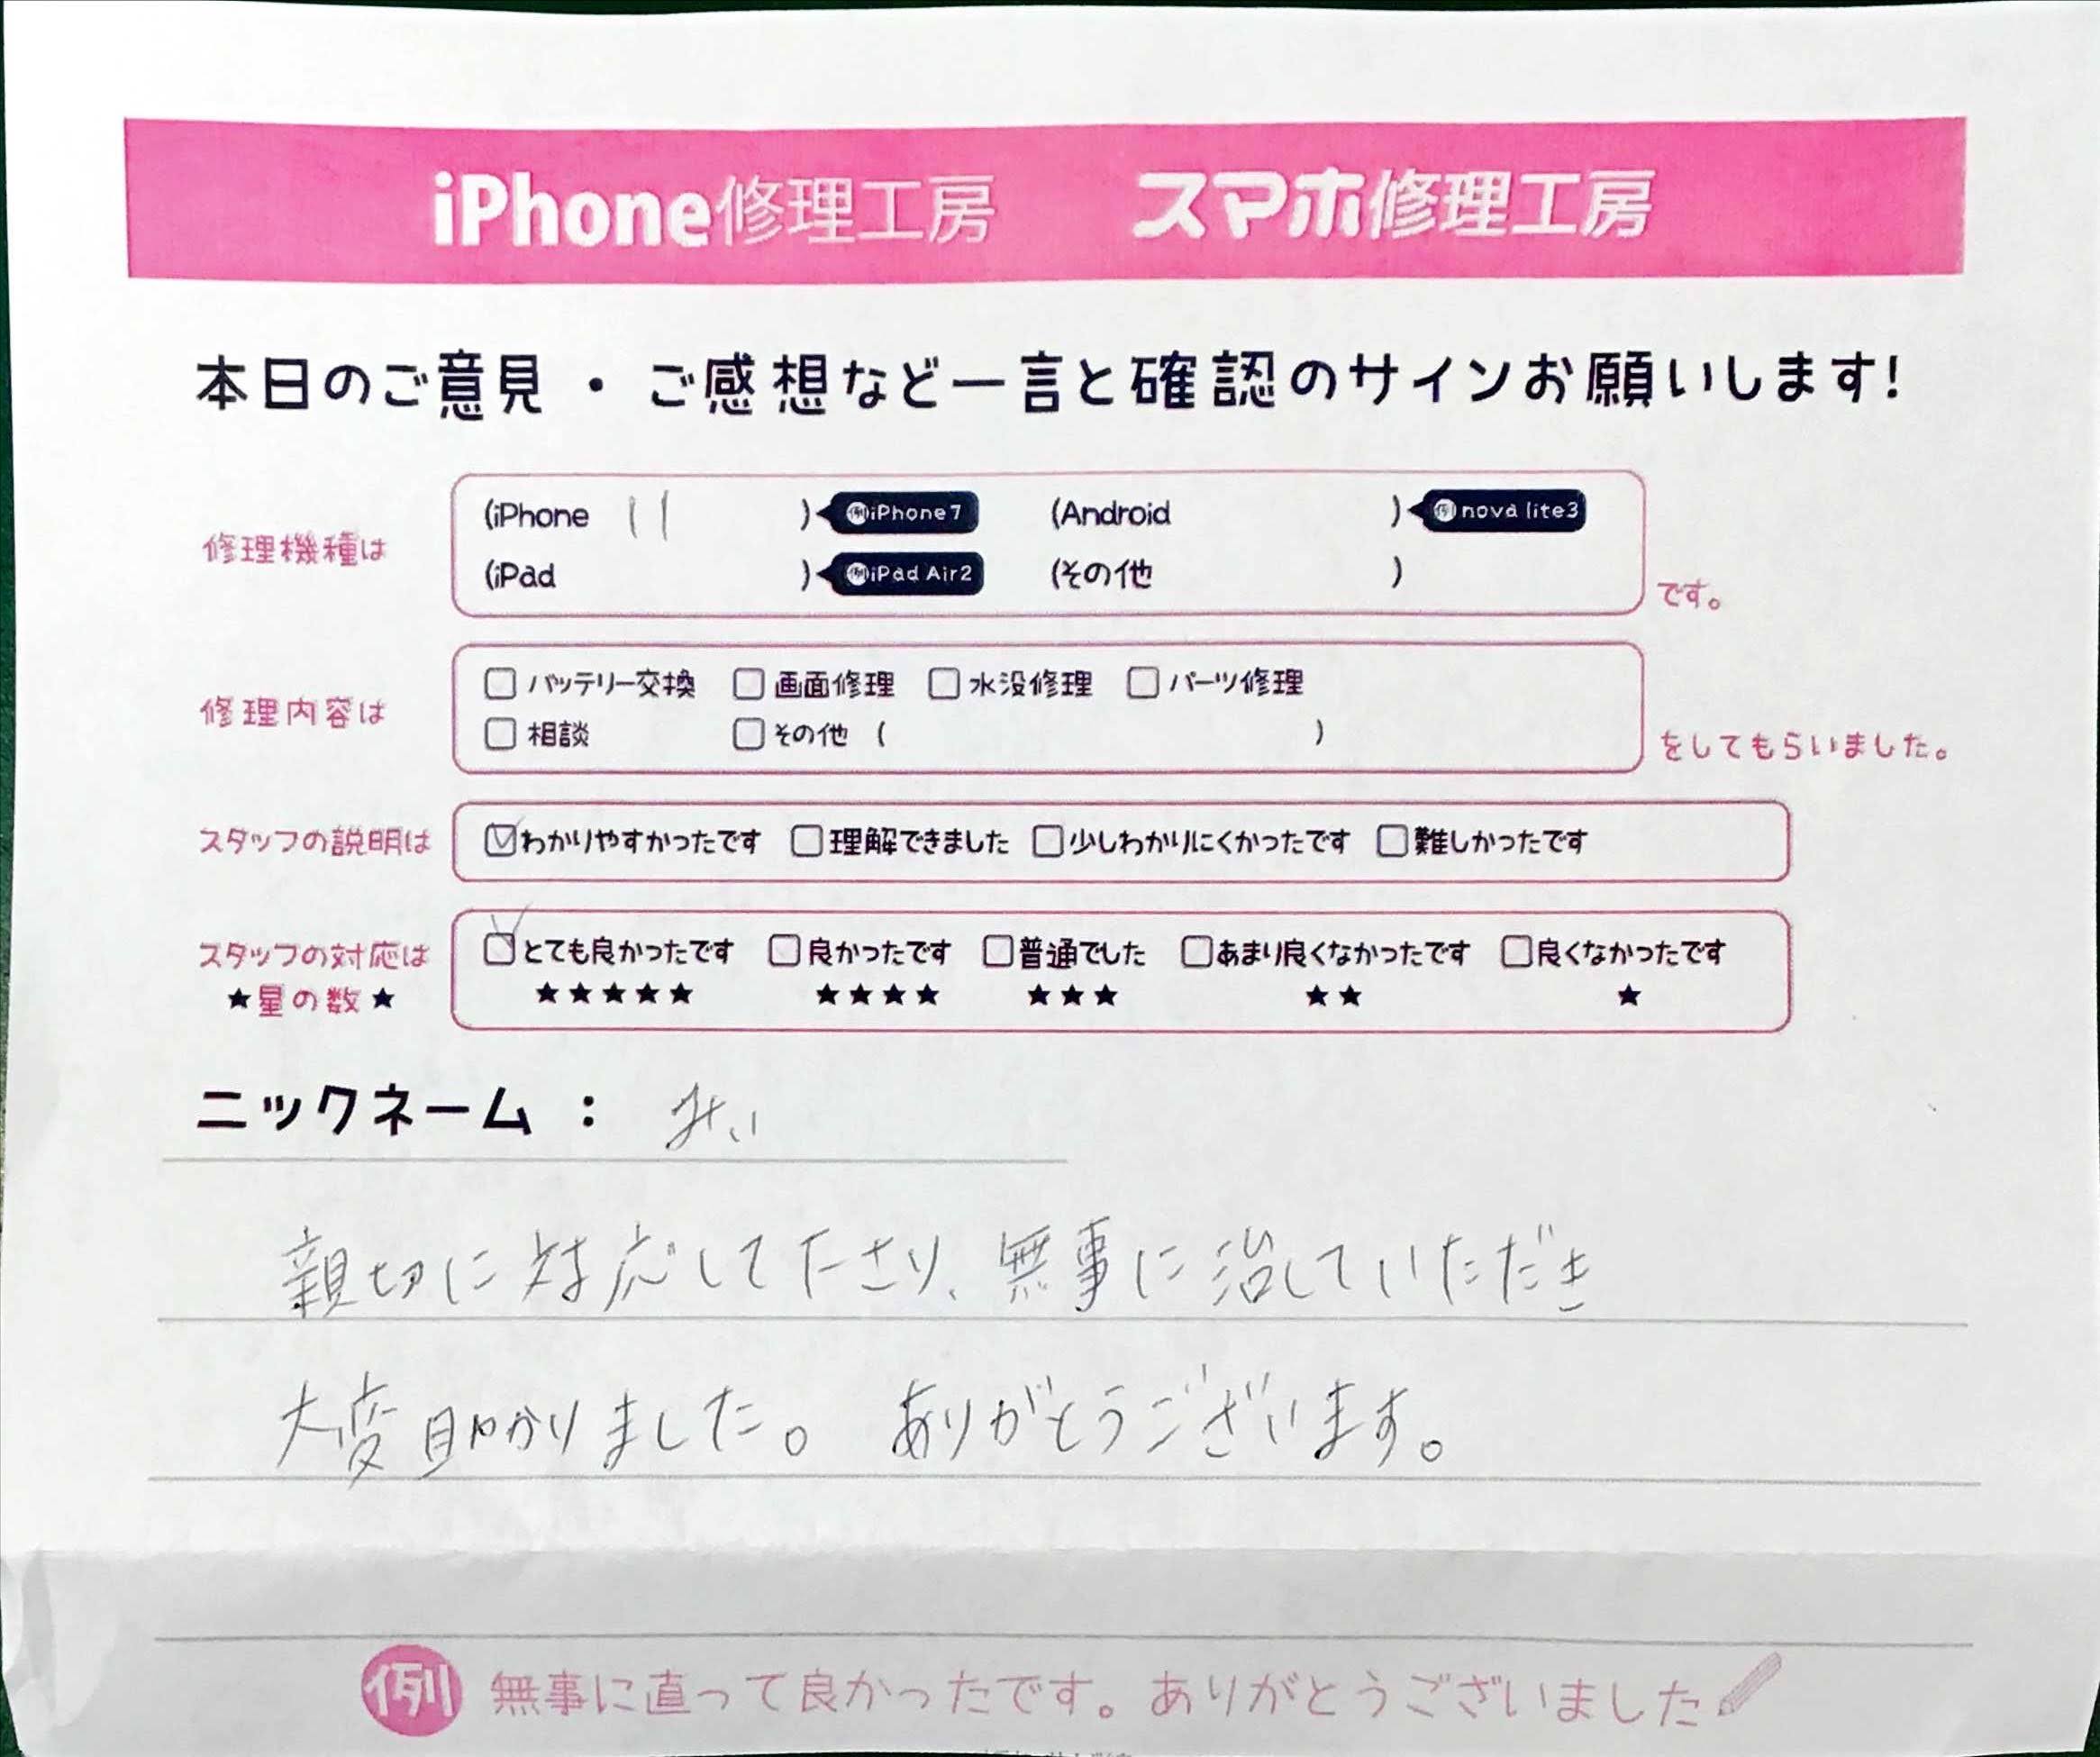 iPhone修理工房 スマホ修理工房
本日のご意見・ご感想など一言と確認のサインお願いします!
修理機種は
(iPhone 11 ) 例iPhone7 (Android ) 例nova lite3
(iPad ) 例iPad Air2 (その他 )
です。
修理内容は
□バッテリー交換 □画面修理 □水没修理 □パーツ修理
□相談 □その他 ( )
をしてもらいました。
スタッフの説明は
☑わかりやすかったです □理解できました □少しわかりにくかったです □難しかったです
スタッフの対応は
★星の数★
☑とても良かったです □良かったです □普通でした □あまり良くなかったです □良くなかったです
★★★★★ ★★★★ ★★★ ★★ ★
ニックネーム : みぃ
親切に対応して下さり、無事に治していただき
大変助かりました。 ありがとうございます。
例 無事に直って良かったです。ありがとうございました